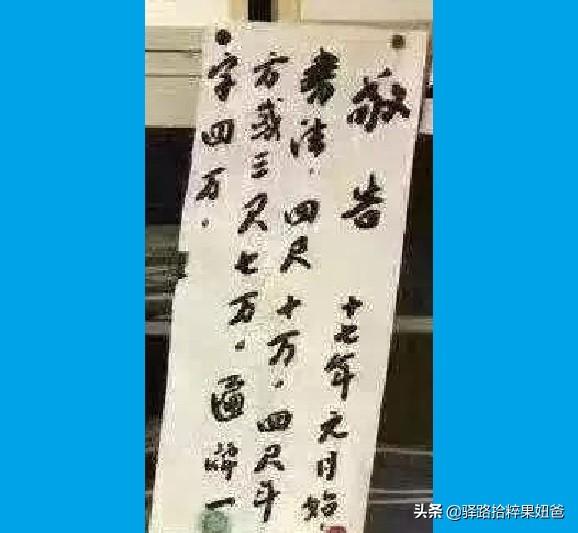 敬告 十七年元月始,
书法,四尺十万。四尺斗
方或三尺七万。匾牌一
字四万。
头条 @驿路拾粹果妞爸